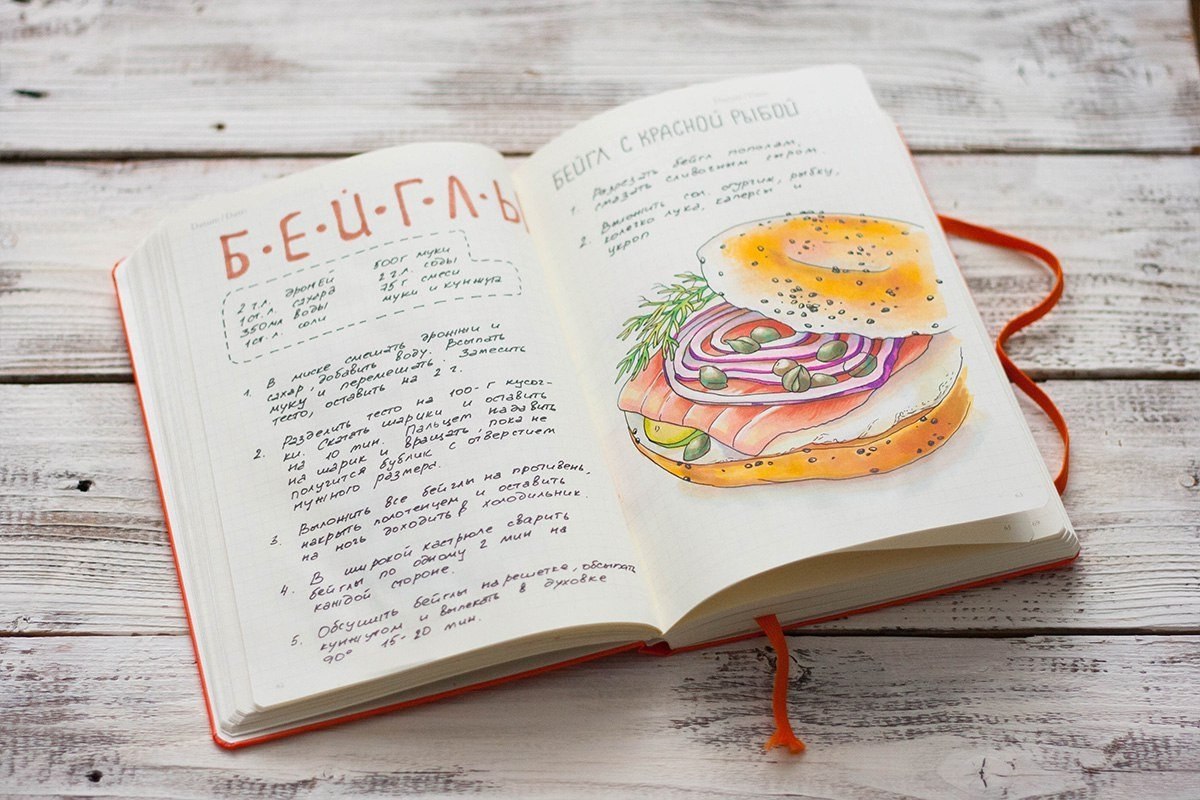 Datum / Date
Б·Е·Й·Г·Л·Ы
2 ч.л. дрожжей 500г муки
1 ст.л. сахара 2 ч.л. соды
350мл воды 25 г смеси
1 ст.л. соли муки и кунжута
1. В миске смешать дрожжи и
сахар, добавить воду. Всыпать
муку и перемешать. Замесить
тесто, оставить на 2 г.
2. Разделить тесто на 100-г кусоч-
ки. Скатать шарики и оставить
на 10 мин. Пальцем надавить
на шарик и вращать, пока не
получится бублик с отверстием
нужного размера.
3. Выложить все бейглы на противень,
накрыть полотенцем и оставить
на ночь доходить в холодильник.
4. В широкой кастрюле сварить
бейглы по одному 2 мин на
каждой стороне.
5. Обсушить бейглы на решетке, обсыпать
кунжутом и выпекать в духовке
90° 15-20 мин.
БЕЙГЛ С КРАСНОЙ РЫБОЙ
1. Разрезать бейгл пополам,
смазать сливочным сыром.
2. Выложить сол. огурчик, рыбку,
колечко лука, каперсы и
укроп